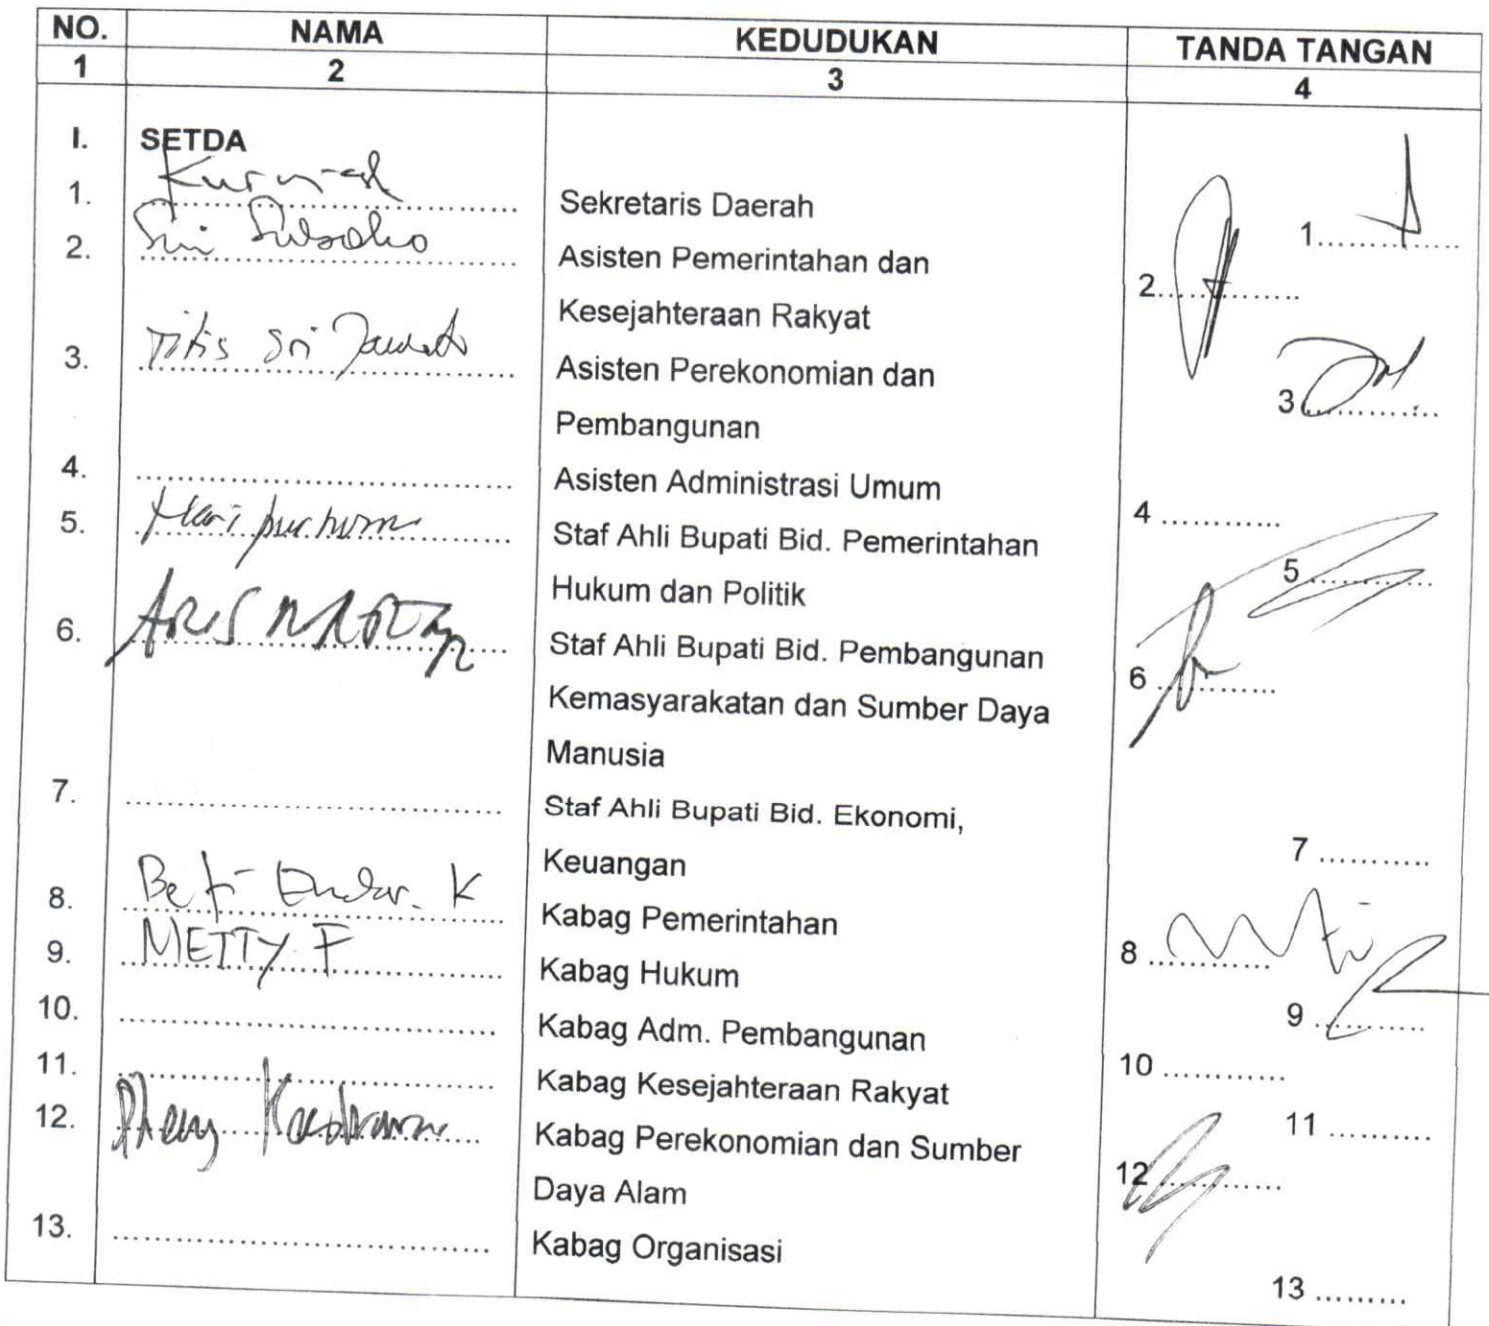 NO. NAMA KEDUDUKAN TANDA TANGAN
1 2 3 4
I. SETDA
1. .......... Sekretaris Daerah 1..........
2. Sri .......... Asisten Pemerintahan dan 2..........
Kesejahteraan Rakyat
3. Titis Sri .......... Asisten Perekonomian dan 3..........
Pembangunan
4. .......... Asisten Administrasi Umum 4 ..........
5. Hari purnomo Staf Ahli Bupati Bid. Pemerintahan 5..........
Hukum dan Politik
6. ARIS .......... Staf Ahli Bupati Bid. Pembangunan 6..........
Kemasyarakatan dan Sumber Daya
Manusia
7. .......... Staf Ahli Bupati Bid. Ekonomi, 7 ..........
Keuangan
8. Beti Endar. K Kabag Pemerintahan 8 ..........
9. METTY F Kabag Hukum 9 ..........
10. .......... Kabag Adm. Pembangunan 10 ..........
11. .......... Kabag Kesejahteraan Rakyat 11 ..........
12. .......... Kabag Perekonomian dan Sumber 12..........
Daya Alam
13. .......... Kabag Organisasi 13 .........